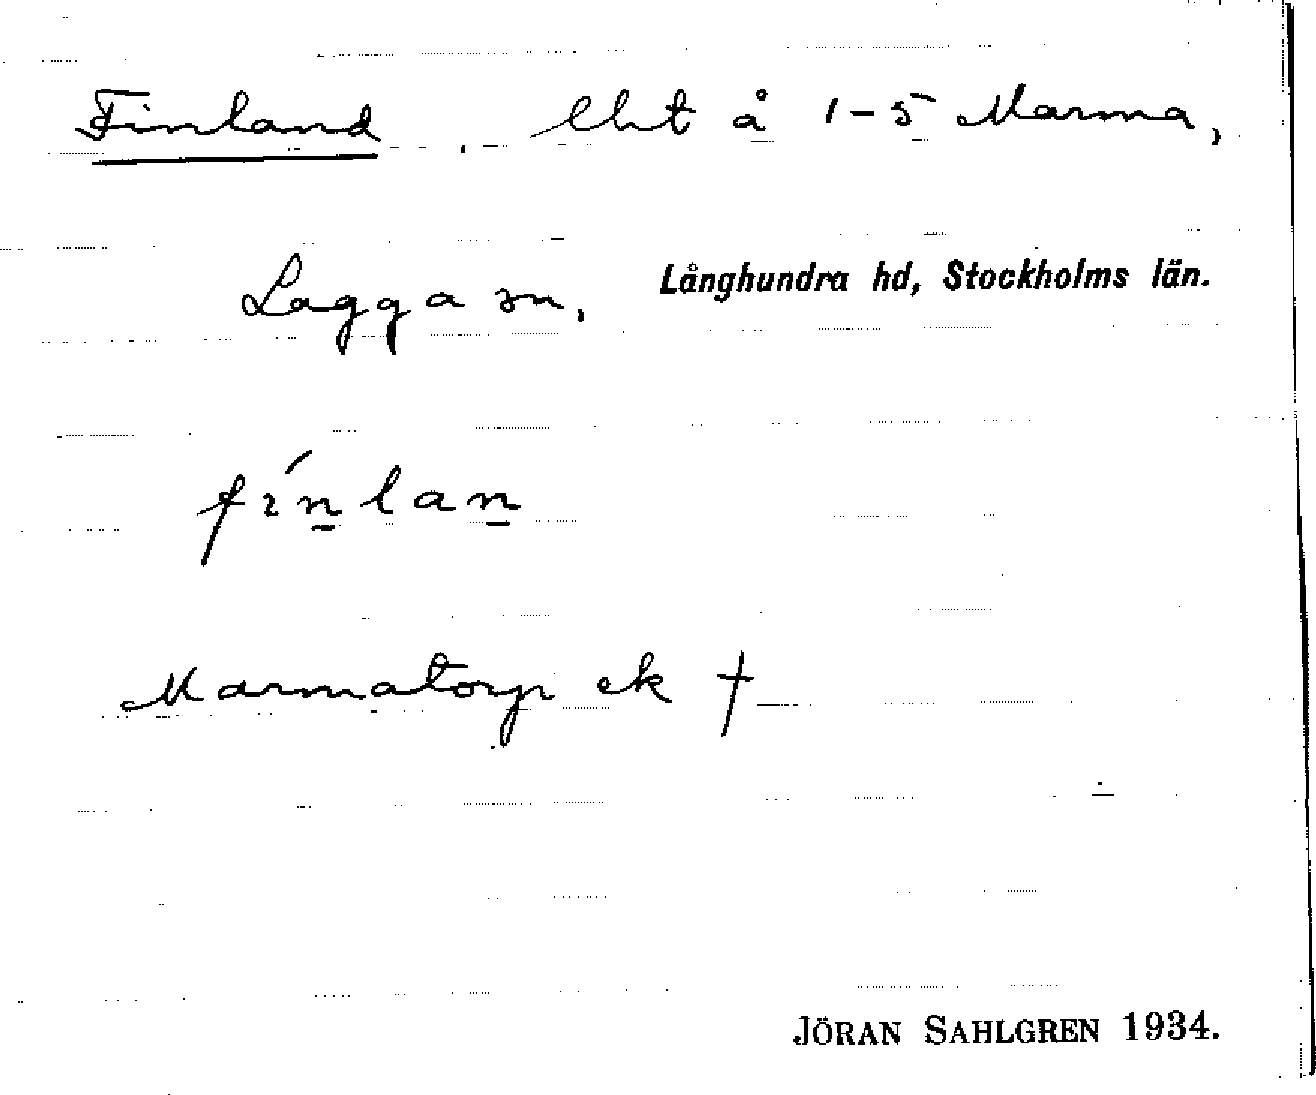 Finland. lht å 1-5 Marma,
Lagga sn, Långhundra hd, Stockholms län.
fín̠lan̠
Marmatorp ek †
JÖRAN SAHLGREN 1934.